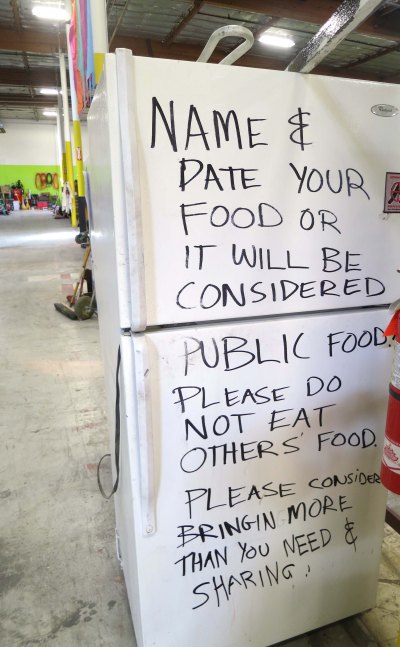 NAME &
DATE YOUR
FOOD OR
IT WILL BE
CONSIDERED
PUBLIC FOOD.
PLEASE DO
NOT EAT
OTHERS' FOOD.
PLEASE CONSIDER
BRINGIN MORE
THAN YOU NEED &
SHARING!